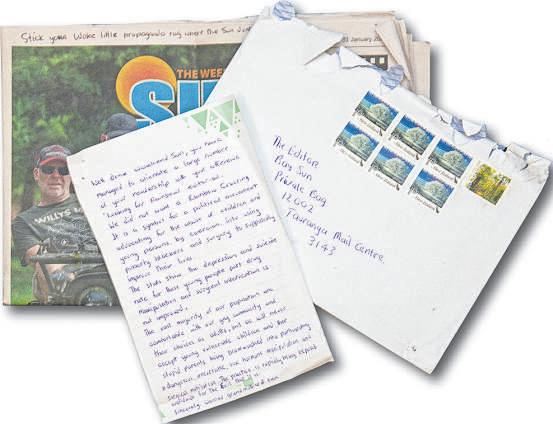 Stick your Woke little propaganda rag where the Sun
January 20
THE WEE
SU
WILLYS
Well done Weekend Sun, you have
managed to alienate a large number
of your readership with your offensive
'Looking for Rainbows' editorial.
We did not want a Rainbow Crossing
It is a symbol for a political movement
advocating for the abuse of children and
young people by coercion, into using
puberty blockers and surgery to supposedly
improve their lives
The stats show the depression and suicide
rate for these young people post drug
manipulation and surgical intervention is
not improved.
The vast majority of our population are
comfortable with our gay community and
their choices as adults, but we will never
accept young vulnerable children and their
stupid parents being brainwashed into participating
in dangerous, irreversible, sex hormone manipulation and
surgical mutilation. The practice is rapidly being exposed
worldwide for the evil that it is
Sincerely worried grandmother of
The Editor
Bay Sun
Private Bag
12002
Tauranga Mail Centre
3143